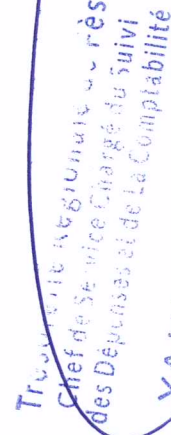 Régionale
Chef de Service Chargé du Suivi
des Dépenses et de La Comptabilité